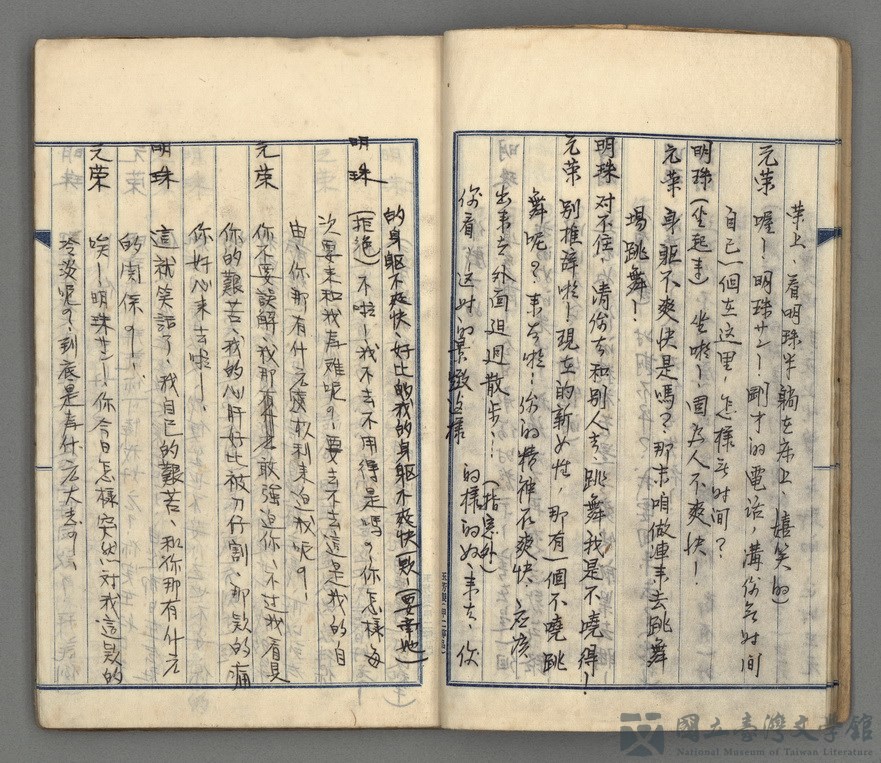 葉上、看明珠半躺在床上、嬉笑的)
元荣 喔!、明珠サン!剛才的電話,講你無时间
自已一個在这里,怎樣無时间?
明珠(坐起来) 坐啦!、因為人不爽快!
元荣 身軀不爽快是嗎?那末咱做陣来去跳舞
場跳舞!
明珠 对不住,请你去和别人去,跳舞我是不曉得!
元荣 别推辞啦!現在的新女性,那有一個不曉跳
舞呢?来去啦!你的精神不爽快,应该
出来去外面迫迌散步…(指窓外)
你看,这时的景緻这樣的樣的好、来去,你
的身軀不爽快、好比的我的身軀不爽快一款、(要牽她)
明珠(拒绝)不啦!我不去不用得是嗎?你怎樣每
次要来和我為难呢?要去不去這是我的自
由、你那有什么權利来迫我呢?
元荣 你不要誤解、我那有什么敢強迫你、不过我看見
你的艱苦、我的心肝好比被刀仔割、那款的痛
你好心来去啦!、
明珠 這就笑話了、我自已的艱苦、和你那有什么
的関係?!、
元荣 唉!明珠サン!、你今日怎樣突然对我這款的
冷淡呢?、到底是為什么大志?!、
國立臺灣文學館
National Museum of Taiwan Literature